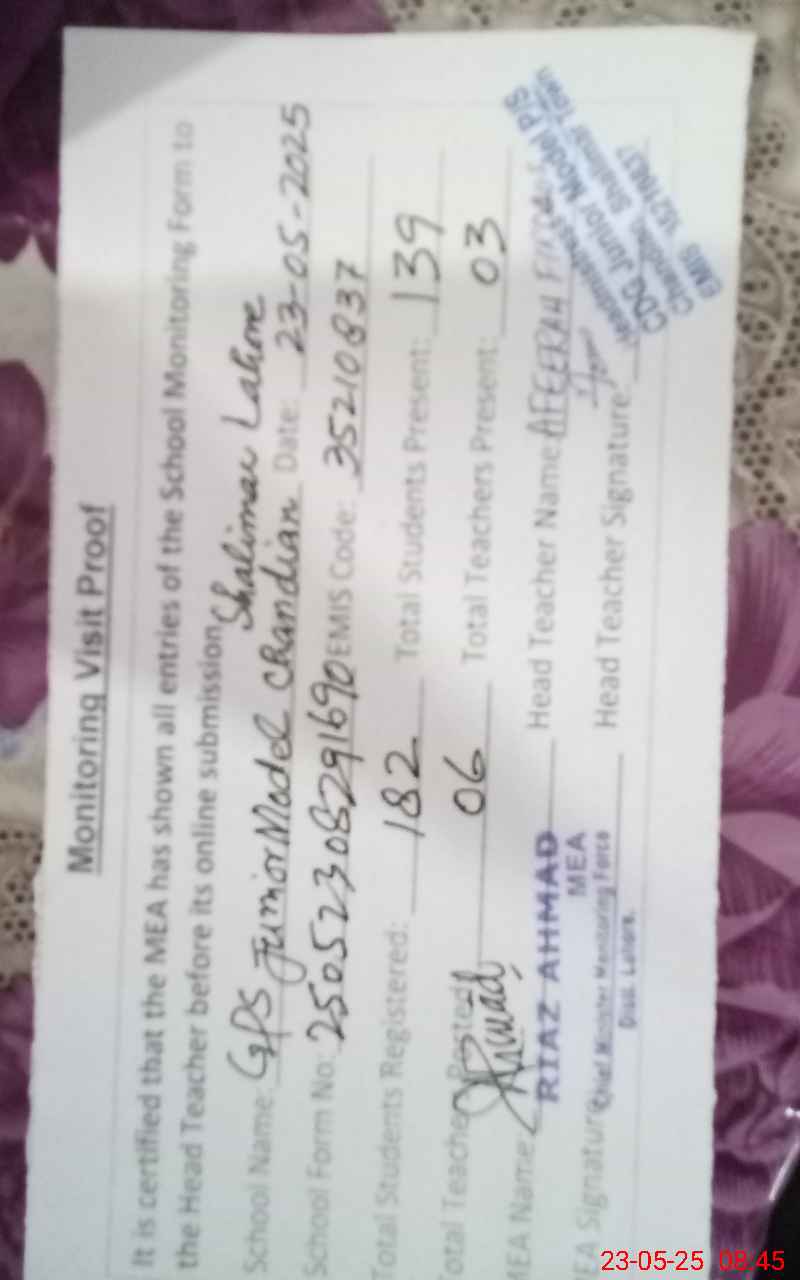 Monitoring Visit Proof
It is certified that the MEA has shown all entries of the School Monitoring Form to
the Head Teacher before its online submission
School Name: GPS Junior Model Chandian Shalimar Lahore Date: 23-05-2025
School Form No: 25052308291690 EMIS Code: 35210837
Total Students Registered: 182 Total Students Present: 139
Total Teacher Posted 06 Total Teachers Present: 03
MEA Name: RIAZ AHMAD Head Teacher Name: AFEERAH
MEA
EA Signature Head Teacher Signature:
Chief Minister Monitoring Force
Distt. Lahore.
Headmistress
CDG Junior Model P/S
Chandian, Shalimar Town
EMIS
23-05-25 08:45